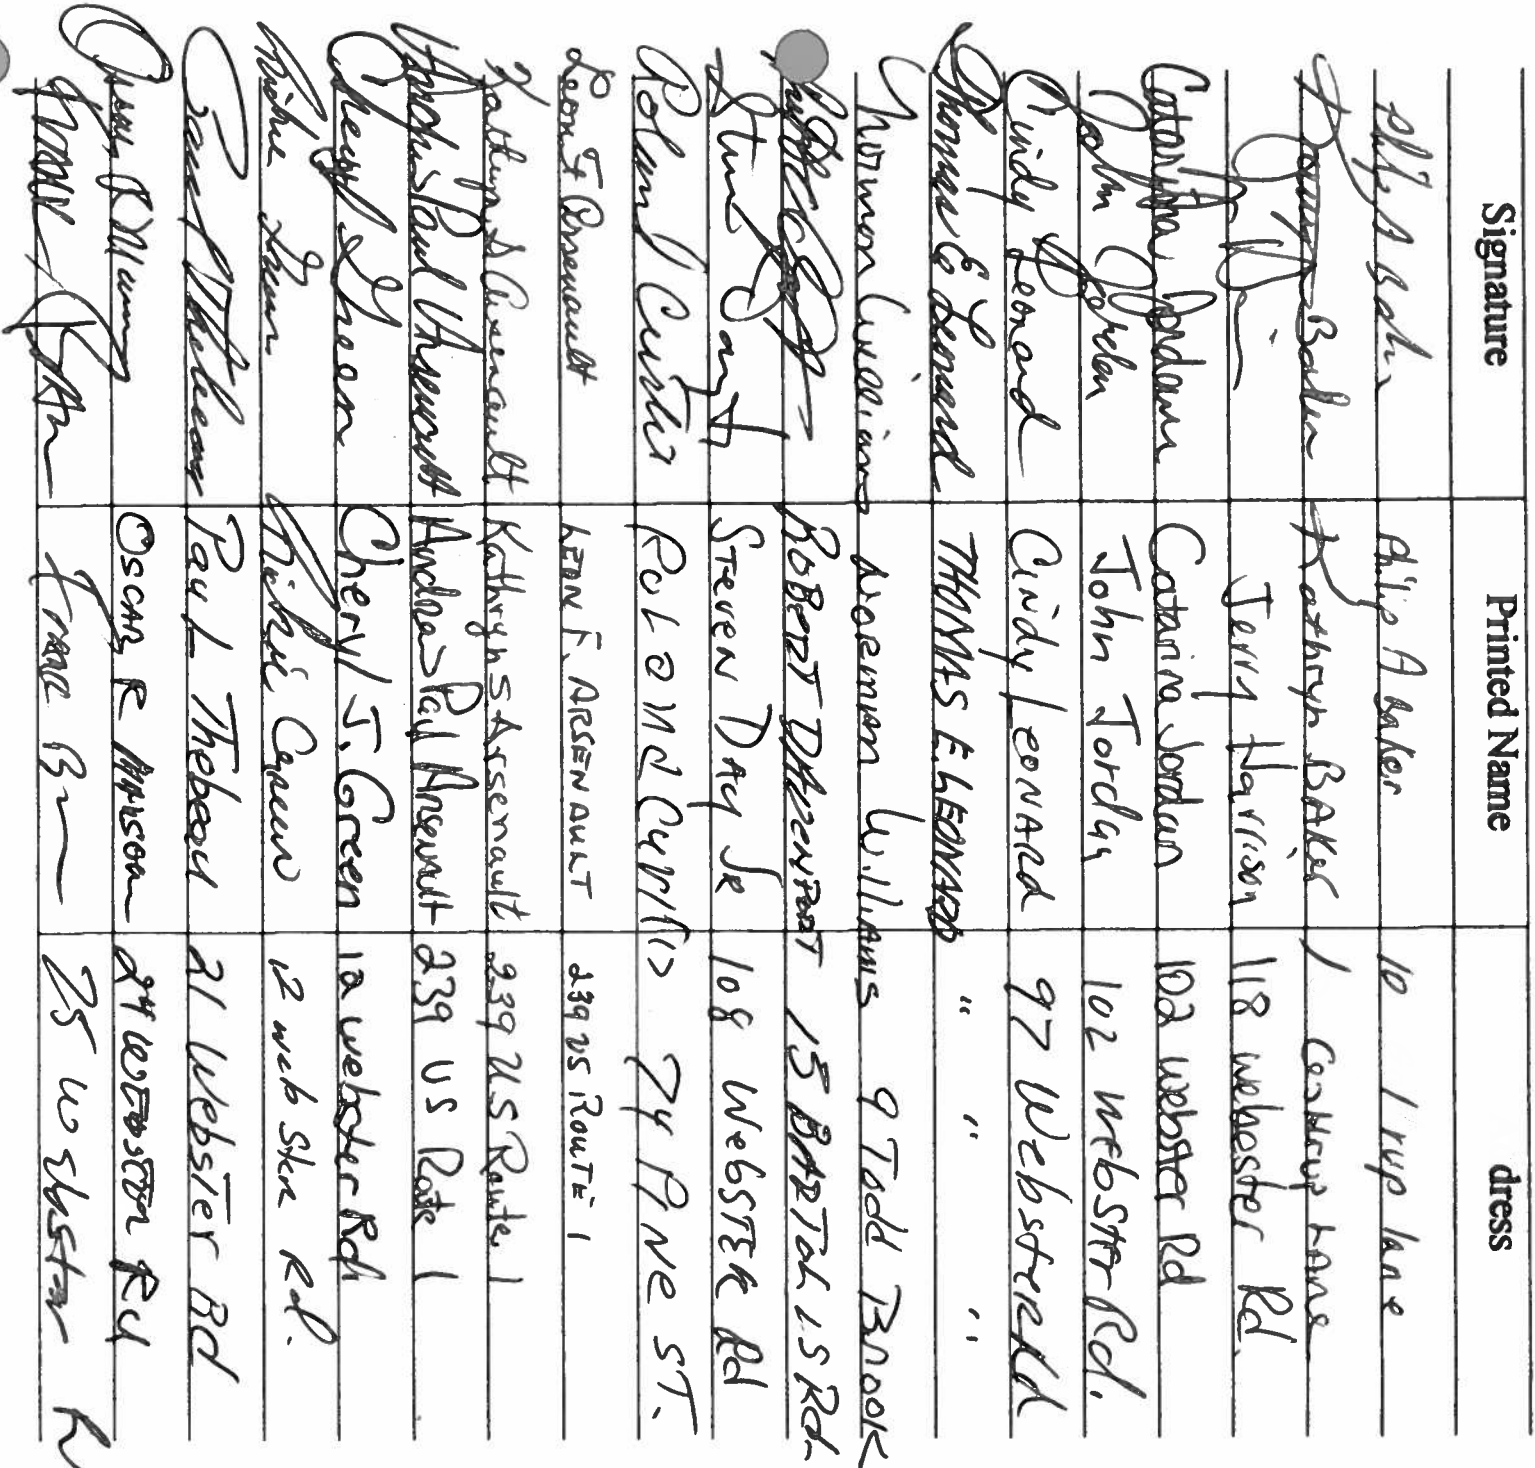 Signature Printed Name dress
Philip A Baker Philip A Baker 10 Irup lane
Kathryn Baker Kathryn BAKer 1 Lane
Jerry Harrison 118 webester Rd.
Catarina Jordan Catarina Jordan 102 webster Rd
John Jordan John Jordan 102 WebSter Rd.
Cindy Leonard Cindy LeoNARd 97 Webster Rd
Thomas E Leonard THOMAS E. LEONARD " " "
Norman Williams Norman WilliAms 9 Todd Brook
ROBERT DAVENPORT 15 BARTOL IS Rd.
Steven Day Jr STeveN DAY JR 108 WebSTER Rd
Roland Curtis RoLand Curtis 74 PiNe ST.
Leon F Arsenault LEON F. ARSENAULT 239 US ROUTE 1
Kathryn S Arsenault Kathryn S Arsenault 239 US Route 1
Andrew Paul Arsenault Andrew Paul Arsenault 239 US Route 1
Cheryl Green Cheryl J. Green 12 webster Rd
Richie Green Richie Green 12 webster Rd.
Paul Thebeau PauL Thebeau 21 WebsTer Rd
Oscar R Munson OSCAR R MUNSON 24 WEBSTER Rd
25 webster R